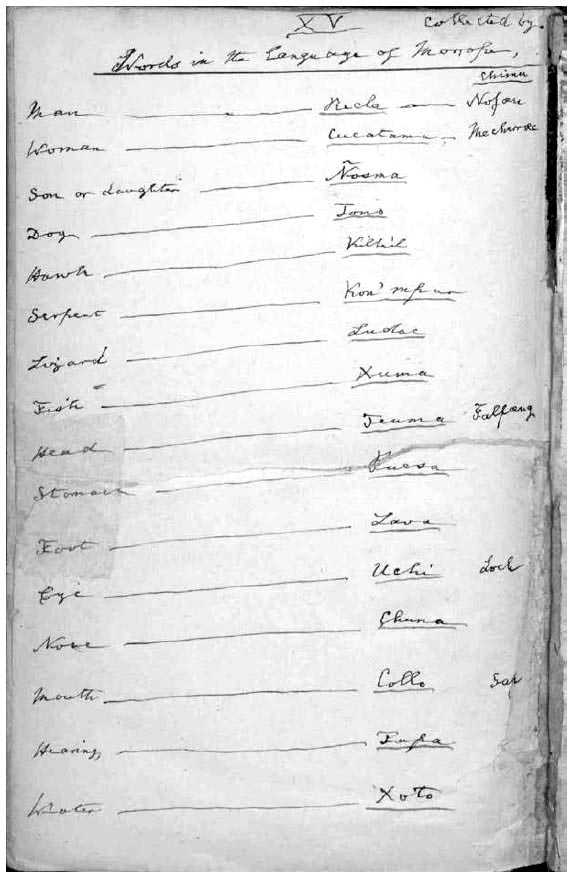 XV collected by
Words in the language of Morrope,
Chimu
Man Recla Nofæn
Woman Cucatama Mecherræc
Son or daughter Ñosma
Dog Tono
Hawk Killkil
Serpent
Lizard Ludac
Fish Xuma
Head Teuma Falfæng
Stomach Puesa
Foot Lava
Eye Uchi Lock
Nose Chuna
Mouth Collo Sap
Hearing Fupa
Water Xoto